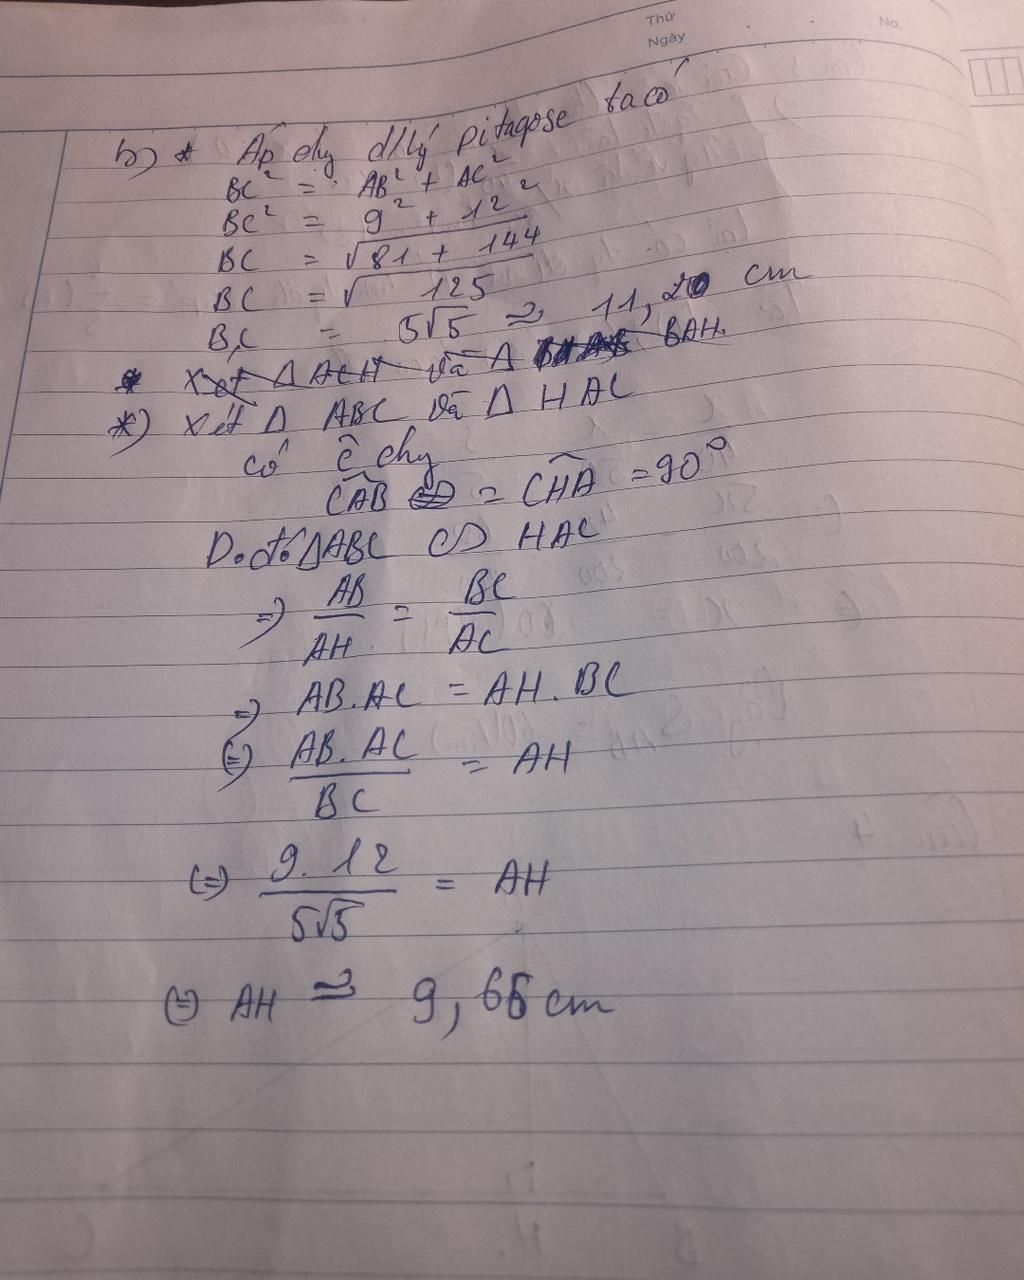 Thứ
Ngày
No.
b) * Áp dụng đ/lý pitagose ta có
BC² = AB² + AC²
BC² = 9² + 12²
BC = √81 + 144
BC = √125
BC = 5√5 ≈ 11,20 cm
* Xét Δ ACH và Δ BAH.
*) Xét Δ ABC và Δ HAC
có Ĉ chg
CAB = CHA = 90°
Do đó ΔABC ∽ HAC
=> AB/AH = BC/AC
=> AB.AC = AH.BC
(=) AB.AC/BC = AH
(=) 9.12/5√5 = AH
(=) AH ≈ 9,66 cm